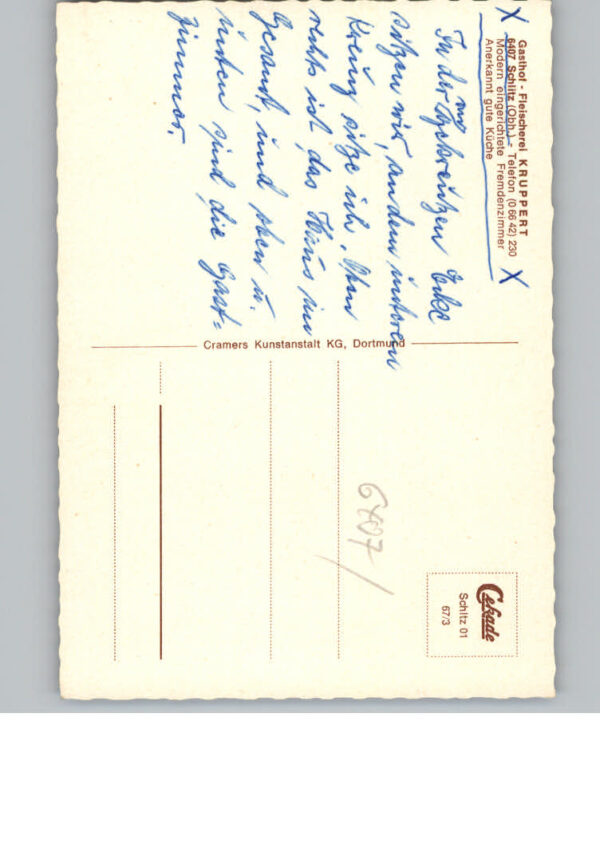 Gasthof - Fleischerei KRUPPERT
6407 Schlitz (Obh.) - Telefon (0 66 42) 230
Modern eingerichtete Fremdenzimmer
Anerkannt gute Küche
X X
In der angekreuzten Ecke
sitzen wir, an dem unteren
Kreuz sitze ich. Oben
rechts ist das Haus im
Gesamt, und oben u.
unten sind die Gast-
zimmer.
Cramers Kunstanstalt KG, Dortmund
6407/
Cekade
Schltz 01
67/3